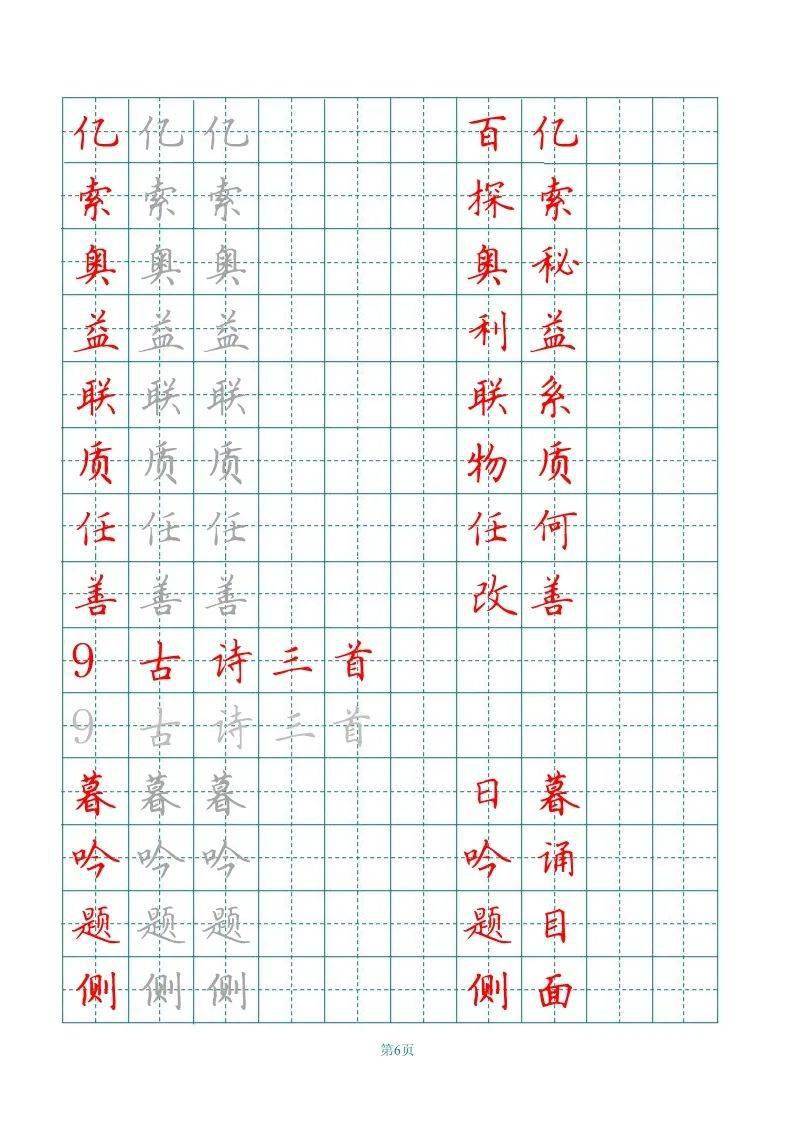 亿 亿 亿 百 亿
索 索 索 探 索
奥 奥 奥 奥 秘
益 益 益 利 益
联 联 联 联 系
质 质 质 物 质
任 任 任 任 何
善 善 善 改 善
9 古 诗 三 首
9 古 诗 三 首
暮 暮 暮 日 暮
吟 吟 吟 吟 诵
题 题 题 题 目
侧 侧 侧 侧 面
第6页